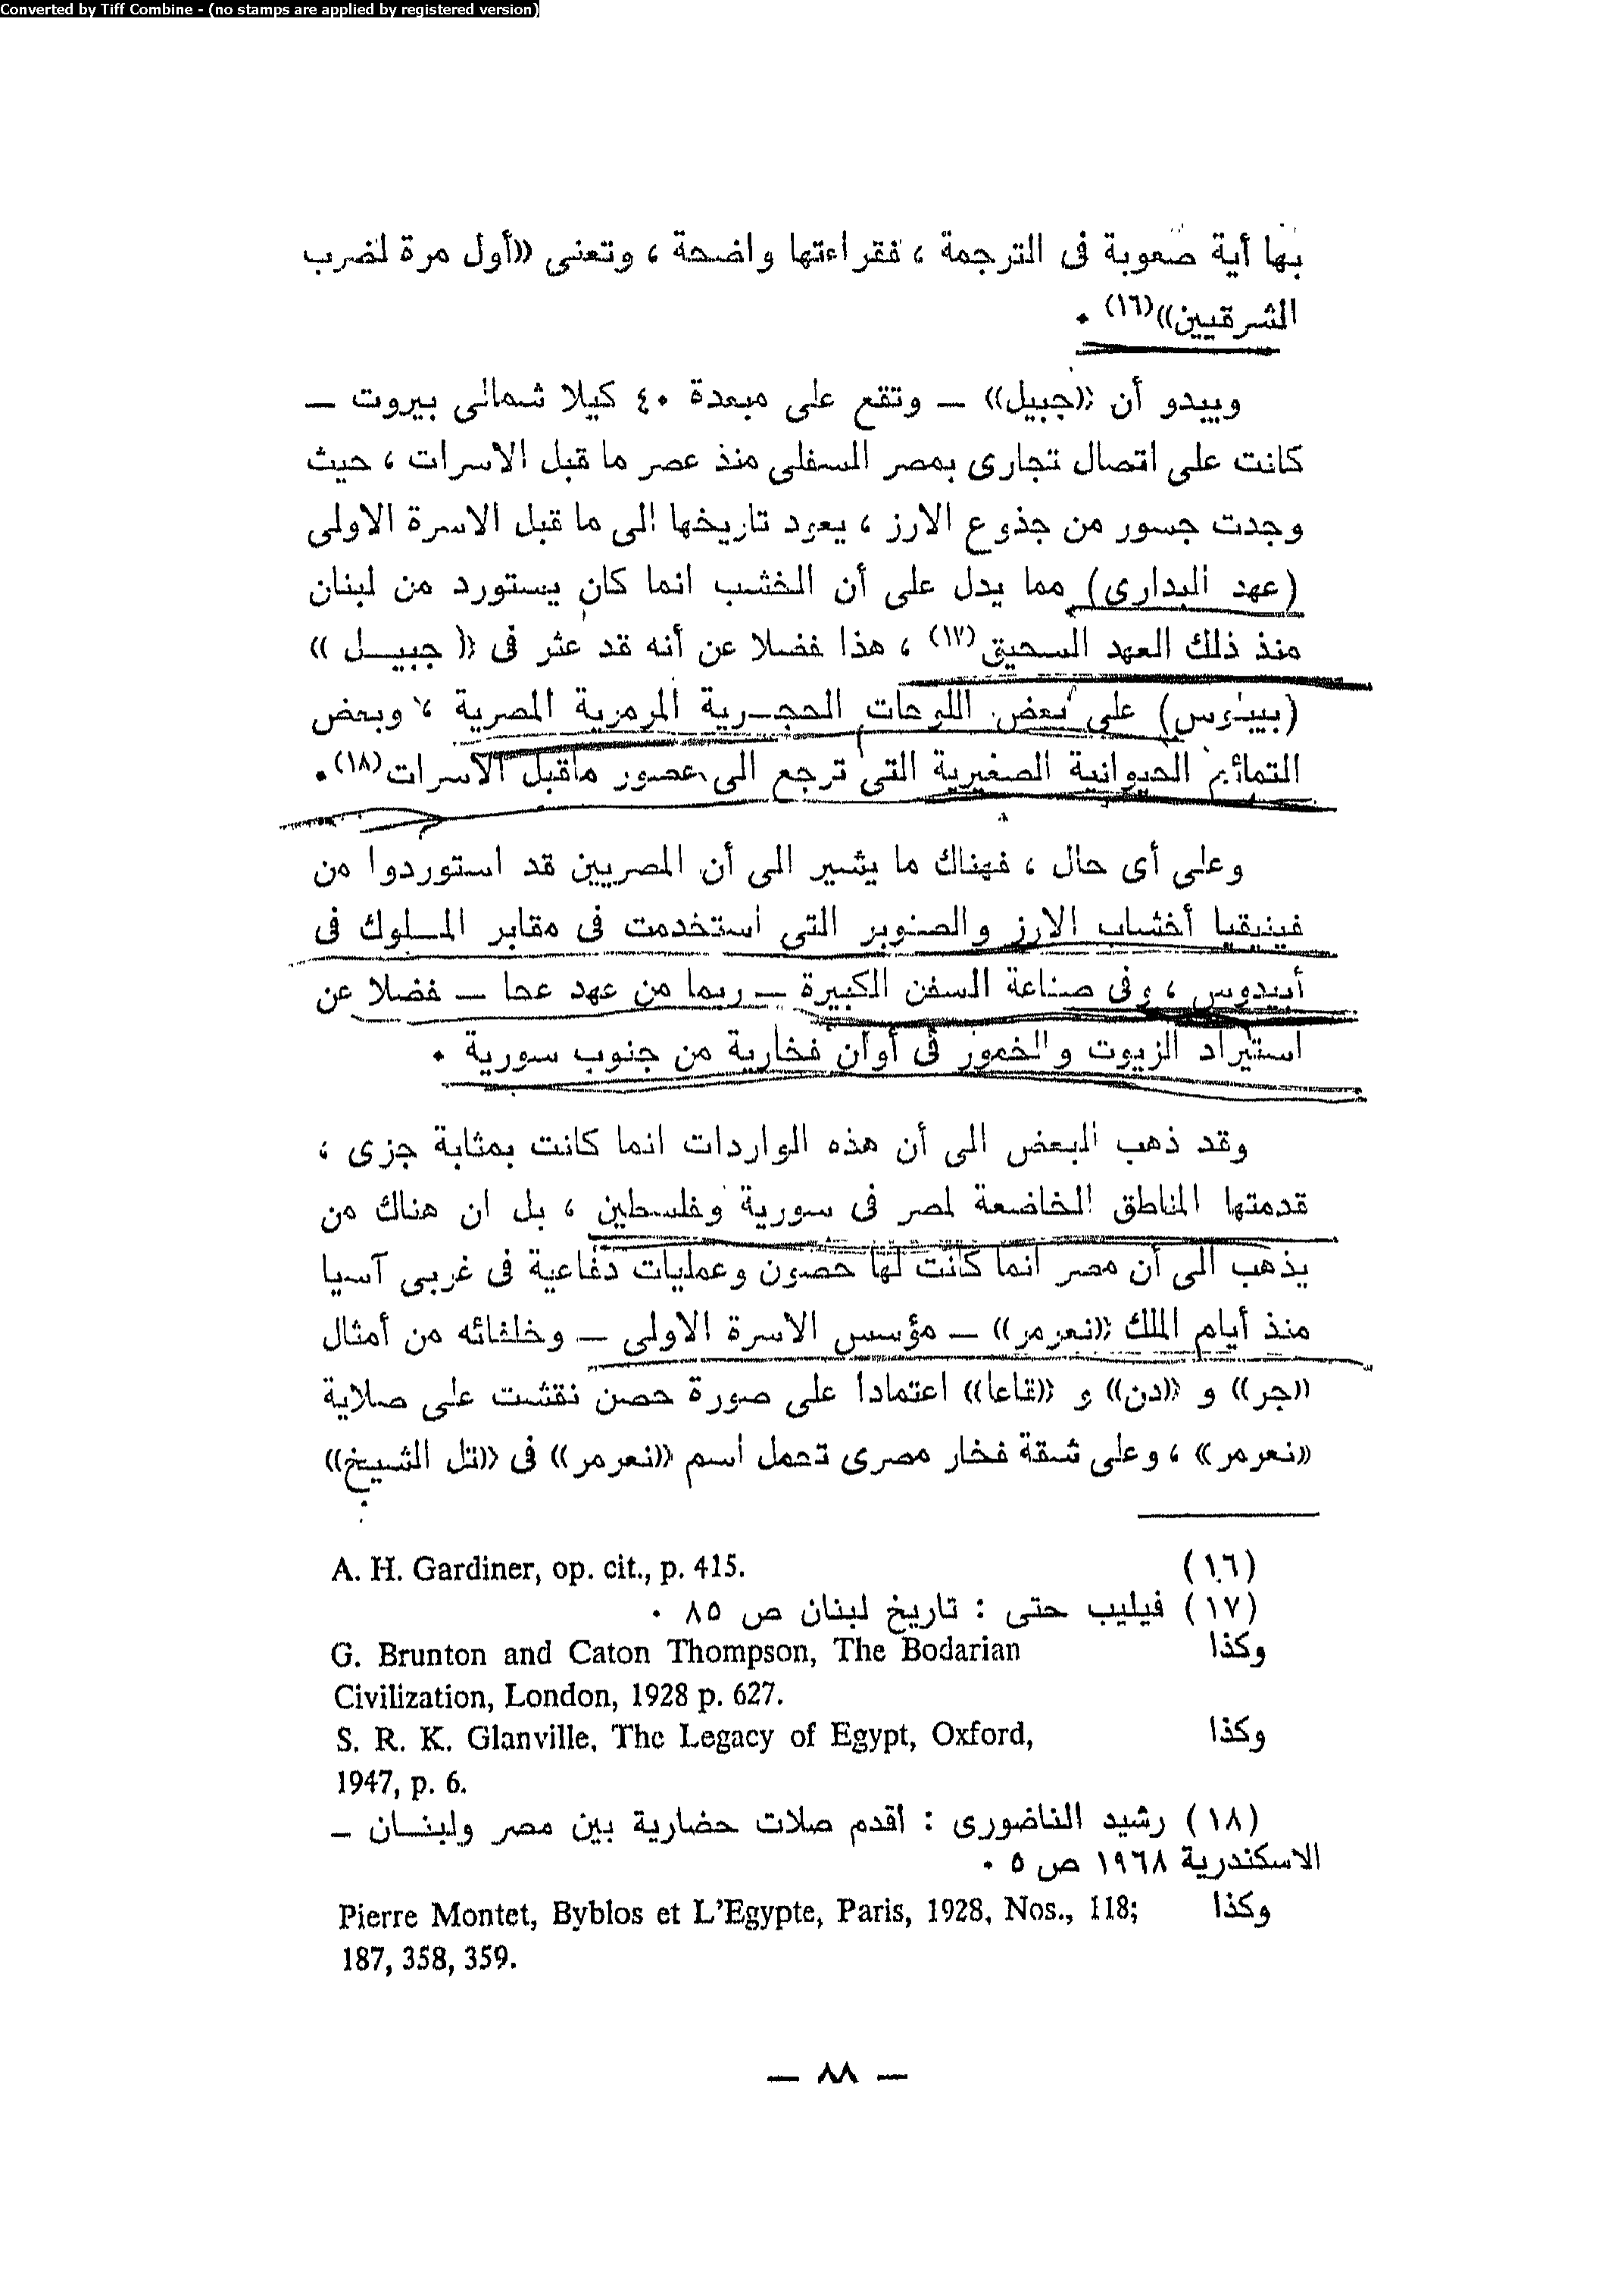 Converted by Tiff Combine - (no stamps are applied by registered version)
بها أية صعوبة فى الترجمة ، فقراءتها واضحة ، وتعنى «أول مرة لضرب
الشرقيين»(١٦) .
ويبدو أن «جبيل» — وتقع على مبعدة ٤٠ كيلا شمالى بيروت —
كانت على اتصال تجارى بمصر السفلى منذ عصر ما قبل الاسرات ، حيث
وجدت جسور من جذوع الارز ، يعود تاريخها الى ما قبل الاسرة الاولى
(عهد البدارى) مما يدل على أن الخشب انما كان يستورد من لبنان
منذ ذلك العهد السحيق(١٧) ، هذا فضلا عن أنه قد عثر فى « جبيل »
(ببيلوس) على بعض اللوحات الحجرية المرمرية المصرية ، وبعض
التمائم الحيوانية الصغيرية التى ترجع الى عصور ماقبل الاسرات(١٨).
وعلى أى حال ، فهناك ما يشير الى أن المصريين قد استوردوا من
فينيقيا أخشاب الارز والصنوبر التى استخدمت فى مقابر الملوك فى
أبيدوس ، وفى صناعة السفن الكبيرة — ربما من عهد عحا — فضلا عن
استيراد الزيوت والخمور فى أوان فخارية من جنوب سورية .
وقد ذهب البعض الى أن هذه الواردات انما كانت بمثابة جزى ،
قدمتها المناطق الخاضعة لمصر فى سورية وفلسطين ، بل ان هناك من
يذهب الى أن مصر انما كانت لها حصون وعمليات دفاعية فى غربى آسيا
منذ أيام الملك «نعرمر» — مؤسس الاسرة الاولى — وخلفائه من أمثال
«جر» و «دن» و «قاعا» اعتمادا على صورة حصن نقشت على صلاية
«نعرمر» ، وعلى شقة فخار مصرى تحمل اسم «نعرمر» فى «تل الشيخ»
(١٦) A. H. Gardiner, op. cit., p. 415.
(١٧) فيليب حتى : تاريخ لبنان ص ٨٥ .
وكذا G. Brunton and Caton Thompson, The Bodarian
Civilization, London, 1928 p. 627.
وكذا S. R. K. Glanville, The Legacy of Egypt, Oxford,
1947, p. 6.
(١٨) رشيد الناضورى : اقدم صلات حضارية بين مصر ولبنان —
الاسكندرية ١٩٦٨ ص ٥ .
وكذا Pierre Montet, Byblos et L'Egypte, Paris, 1928, Nos., 118;
187, 358, 359.
— ٨٨ —